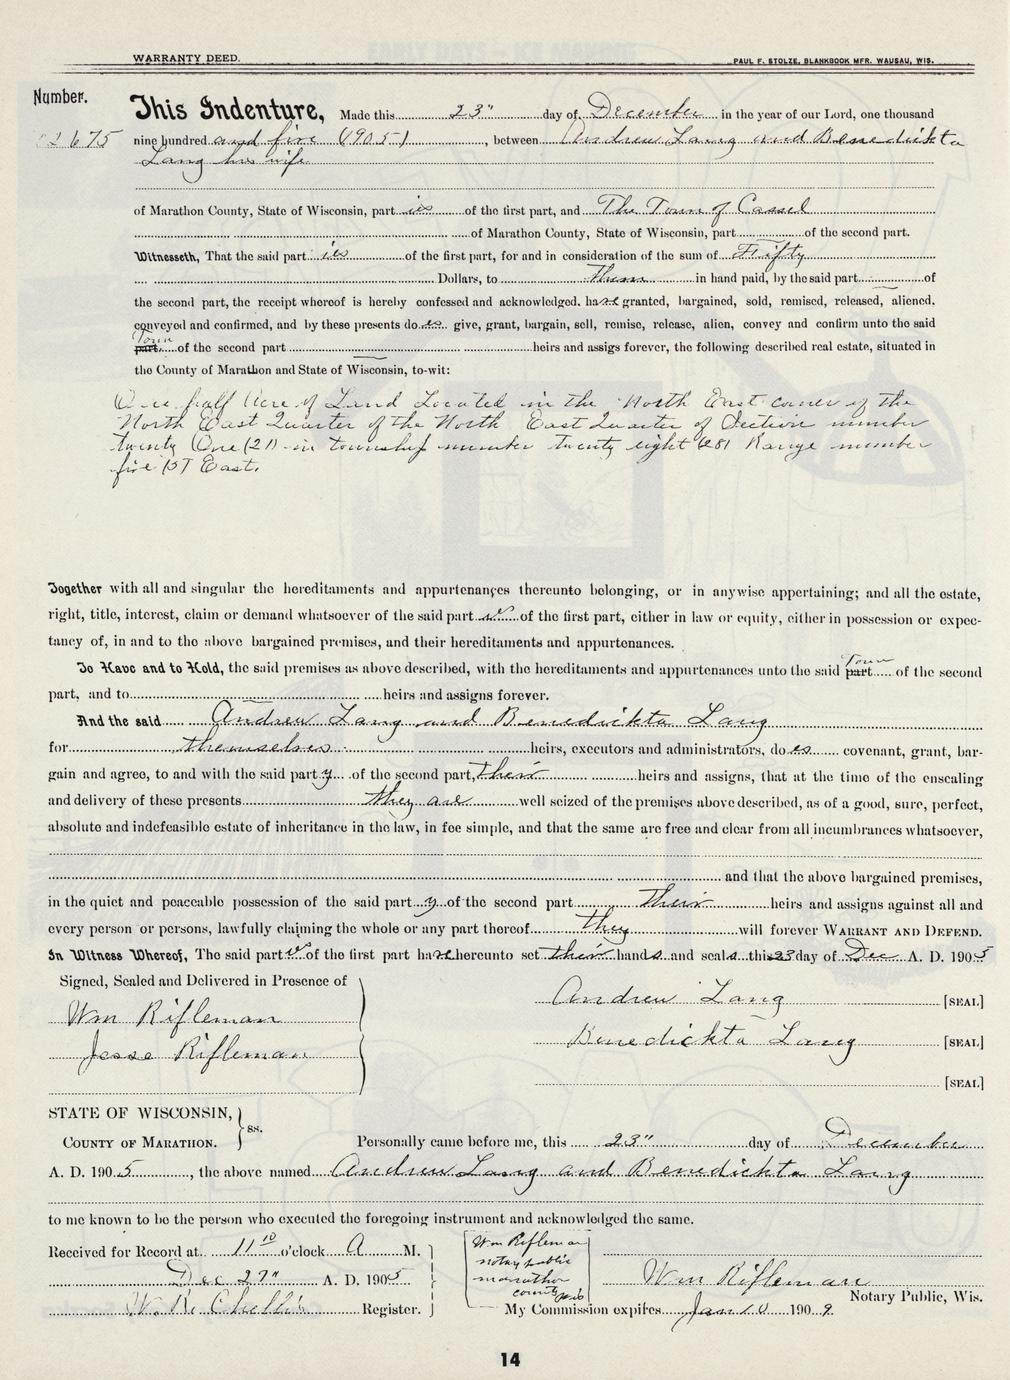 WARRANTY DEED.
PAUL F. STOLZE, BLANKBOOK MFR. WAUSAU, WIS.
Number.
2675
This Indenture, Made this 23" day of December in the year of our Lord, one thousand
nine hundred and five (1905), between Andrew Lang and Benedickta
Lang his wife
of Marathon County, State of Wisconsin, part ies of the first part, and The Town of Cassel
of Marathon County, State of Wisconsin, part of the second part.
Witnesseth, That the said part ies of the first part, for and in consideration of the sum of Fifty
Dollars, to them in hand paid, by the said part of
the second part, the receipt whereof is hereby confessed and acknowledged, have granted, bargained, sold, remised, released, aliened,
conveyed and confirmed, and by these presents does give, grant, bargain, sell, remise, release, alien, convey and confirm unto the said
Town
part of the second part heirs and assigs forever, the following described real estate, situated in
the County of Marathon and State of Wisconsin, to-wit:
One half Acre of Land Located in the North East corner of the
North East Quarter of the North East Quarter of Section number
twenty One (21) in township number twenty eight (28) Range number
five (5) East.
Together with all and singular the hereditaments and appurtenances thereunto belonging, or in anywise appertaining; and all the estate,
right, title, interest, claim or demand whatsoever of the said part of the first part, either in law or equity, either in possession or expec-
tancy of, in and to the above bargained premises, and their hereditaments and appurtonances.
Town
To Have and to Hold, the said premises as above described, with the hereditaments and appurtenances unto the said part of the second
part, and to heirs and assigns forever.
And the said Andrew Lang and Benedickta Lang
for themselves heirs, executors and administrators, does covenant, grant, bar-
gain and agree, to and with the said party of the second part, their heirs and assigns, that at the time of the ensealing
and delivery of these presents they are well seized of the premises above described, as of a good, sure, perfect,
absolute and indefeasible estate of inheritance in the law, in fee simple, and that the same are free and clear from all incumbrances whatsoever,
and that the above bargained premises,
in the quiet and peaceable possession of the said part y of the second part their heirs and assigns against all and
every person or persons, lawfully claiming the whole or any part thereof they will forever WARRANT AND DEFEND.
In Witness Whereof, The said part of the first part have hereunto set their hands and seals this 23 day of Dec A. D. 1905
Signed, Sealed and Delivered in Presence of
Wm Rifleman
Jesse Rifleman
Andrew Lang [SEAL]
Benedickta Lang [SEAL]
[SEAL]
STATE OF WISCONSIN,
COUNTY OF MARATHON.
ss.
Personally came before me, this 23" day of December
A. D. 1905, the above named Andrew Lang and Benedickta Lang
to me known to be the person who executed the foregoing instrument and acknowledged the same.
Received for Record at 11 10 o'clock A M.
Dec 27" A. D. 1905
W. R. Chellis Register.
Wm Rifleman
notary public
marathon
county wis
Wm Rifleman
Notary Public, Wis.
My Commission expires Jan 10 1909.
14